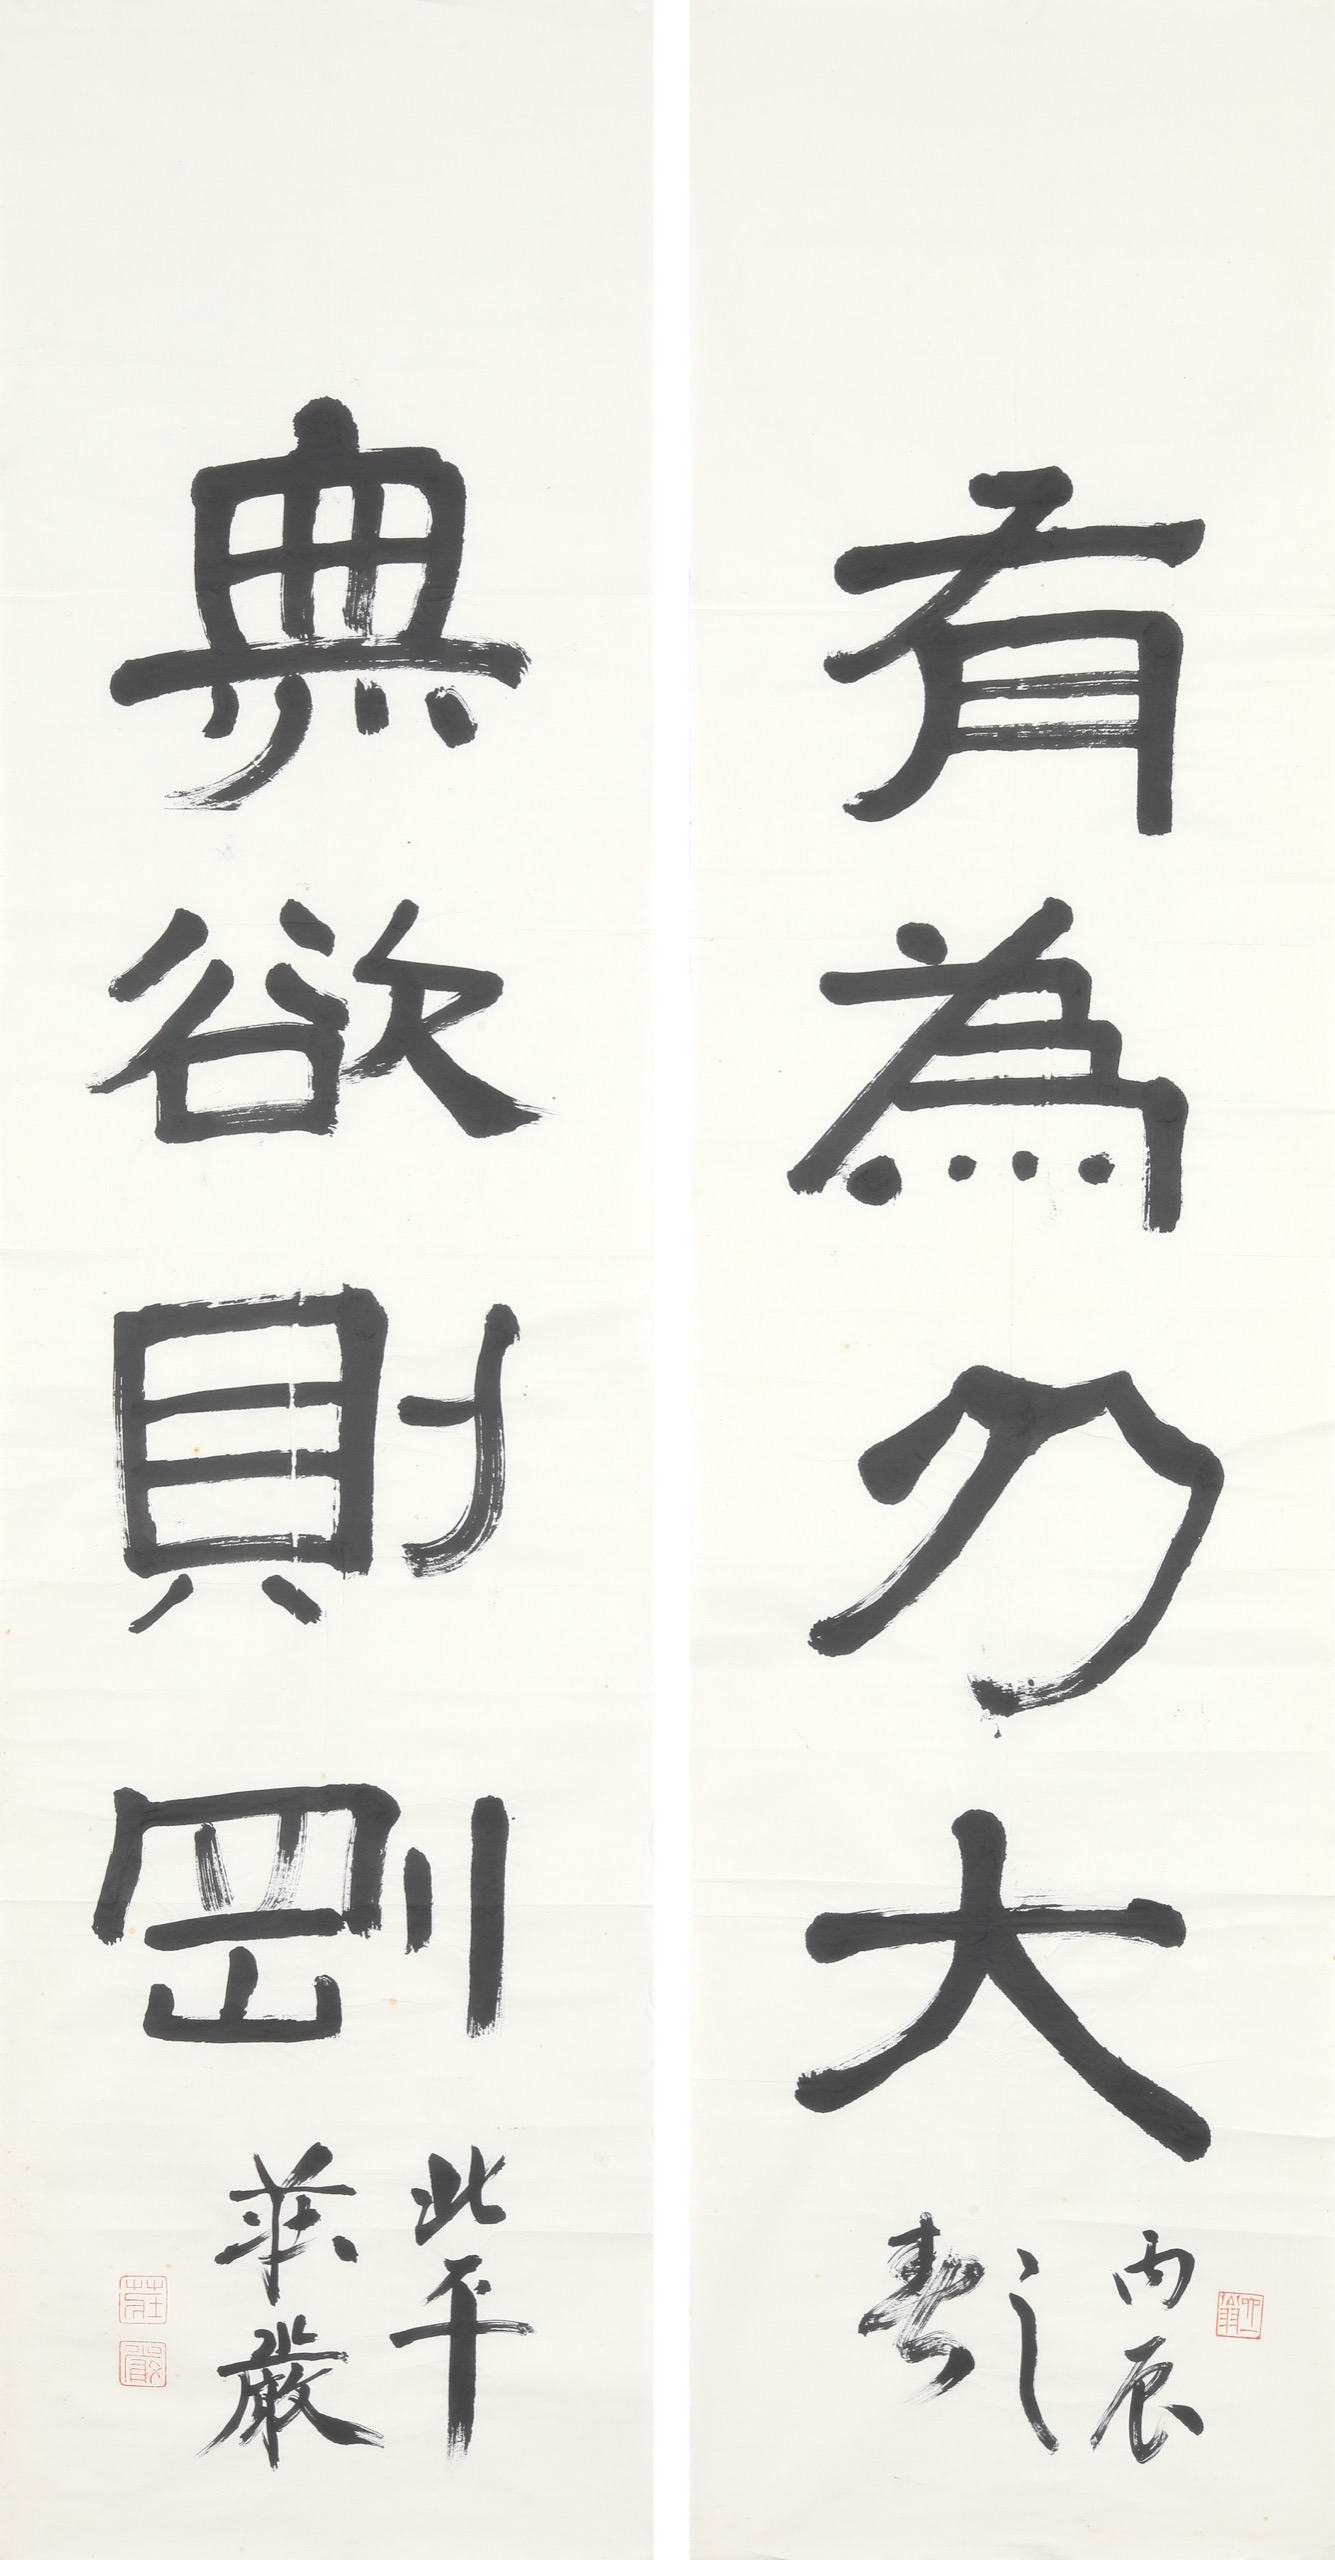 有為乃大
丙辰
之
春
六一翁
無欲則剛
北平
莊嚴
莊
嚴